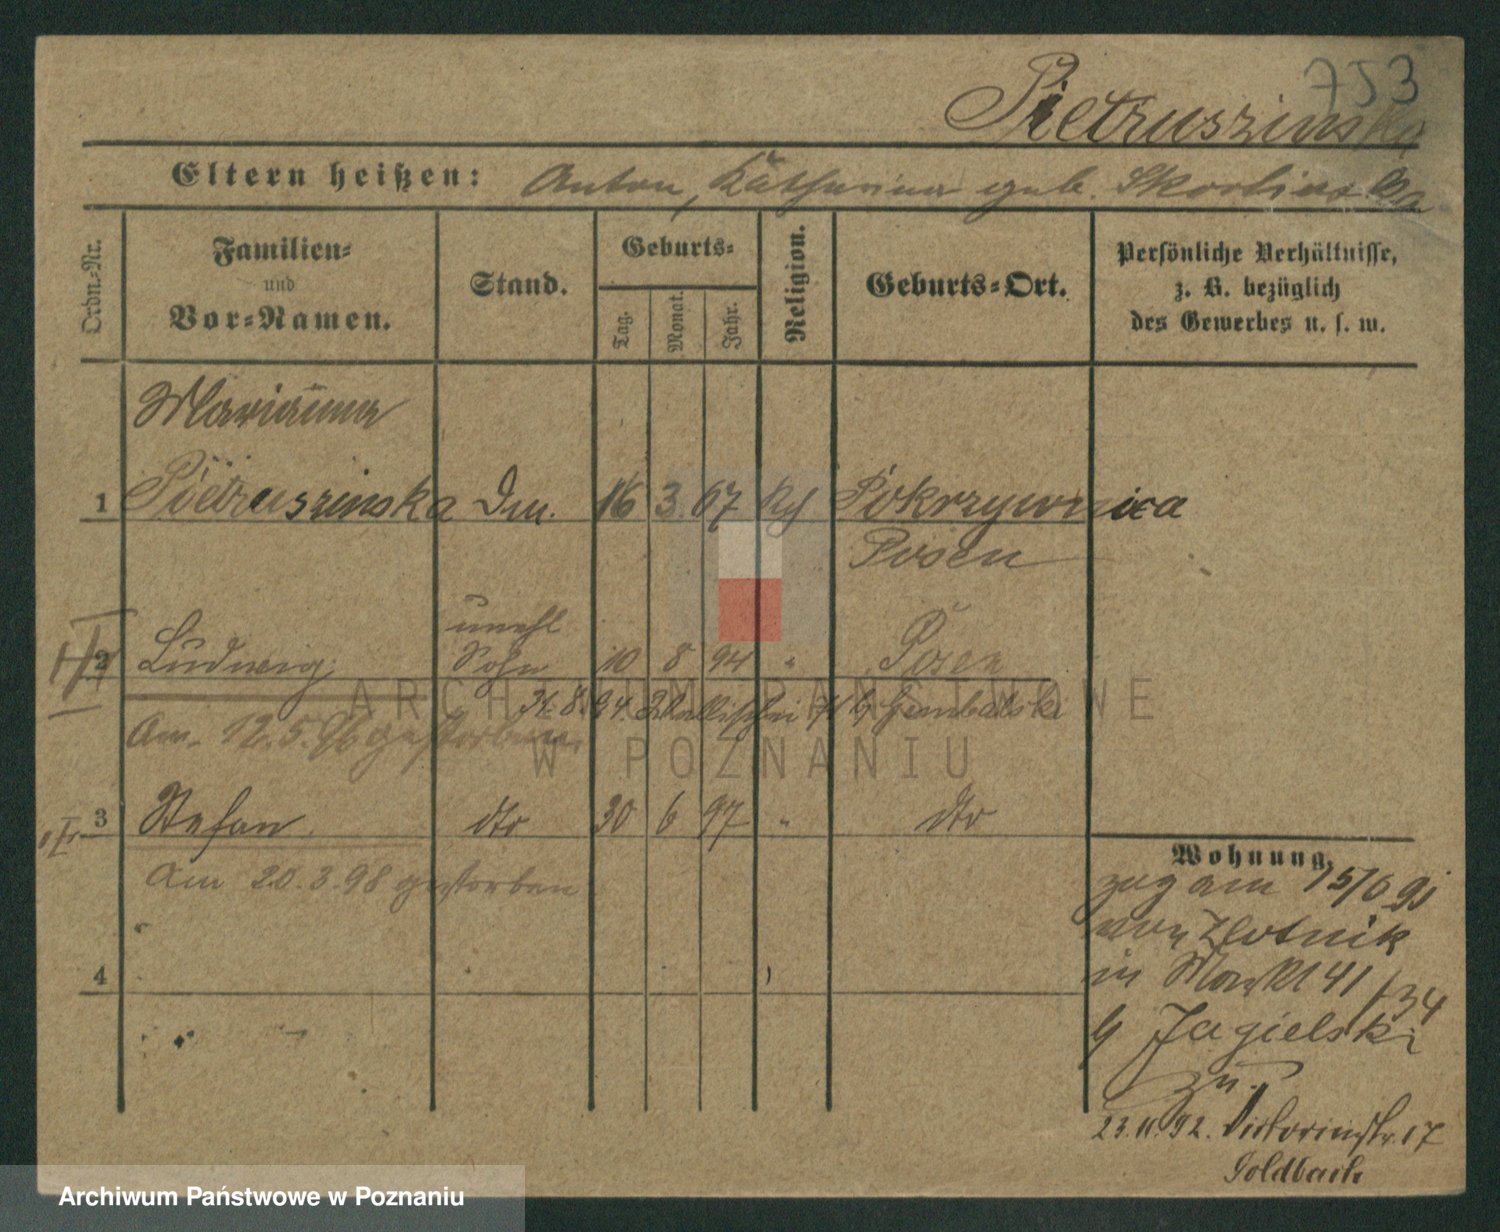 753
Pietruszinska
Eltern heißen: Anton, Katharina geb.
Ordn.-Nr.
Familien- und Vor-Namen.
Stand.
Geburts-
Tag. Monat. Jahr.
Religion.
Geburts-Ort.
Persönliche Verhältnisse, z. B. bezüglich des Gewerbes u. s. w.
Marianna
1 Pietruszinska Dm. 16 3. 67 Kth Pokrzywnica
Posen
unehl
2 Ludwig Sohn 10 8 94 " Posen
31.8.94. Wallischei 71 b/ Gembalski
Am 12.5.96 gestorben.
3 Stefan dto 30 6 97 " dto
Am 20.3.98 gestorben
Wohnung.
zug am 15/6 91
von Zlotnik
in Markt 41 / 34
b/ Jagielski
zu.
23.11.92. Victoriastr. 17
Goldbach
4
ARCHIWUM PAŃSTWOWE
W POZNANIU
Archiwum Państwowe w Poznaniu